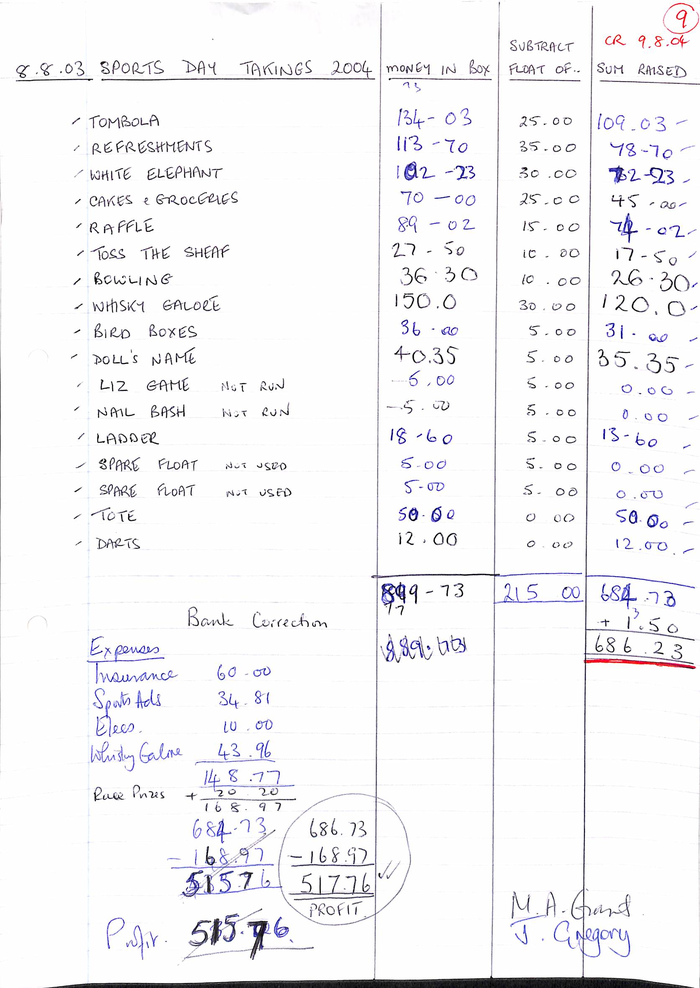 9
CR 9.8.04
8.8.03 SPORTS DAY TAKINGS 2004 MONEY IN BOX SUBTRACT FLOAT OF.. SUM RAISED
✓ TOMBOLA 134-03 25.00 109.03 -
✓ REFRESHMENTS 113-70 35.00 78-70 -
✓ WHITE ELEPHANT 102-23 30.00 72-23 -
✓ CAKES & GROCERIES 70-00 25.00 45.00 -
✓ RAFFLE 89-02 15.00 74-02 -
✓ TOSS THE SHEAF 27-50 10.00 17-50 -
✓ BOWLING 36.30 10.00 26.30 -
✓ WHISKY GALORE 150.0 30.00 120.0 -
✓ BIRD BOXES 36.00 5.00 31.00 -
✓ DOLL'S NAME 40.35 5.00 35.35 -
✓ LIZ GAME NOT RUN 5.00 5.00 0.00 -
✓ NAIL BASH NOT RUN 5.00 5.00 0.00 -
✓ LADDER 18-60 5.00 13-60 -
✓ SPARE FLOAT NOT USED 5.00 5.00 0.00 -
✓ SPARE FLOAT NOT USED 5-00 5.00 0.00 -
✓ TOTE 50.00 0 00 50.00 -
✓ DARTS 12.00 0.00 12.00 -
899-73 215 00 684.73
+ 1.50
686.23
Bank Correction
Expenses
Insurance 60.00
Sports Ads 34.81
Elecs. 10.00
Whisky Galore 43.96
148.77
Race Prizes + 20 20
168.97
684.73 686.73
-168.97 -168.97
515.76 517.76 ✓✓
PROFIT
Profit. 515.76
M.A. Grant
J. Gregory